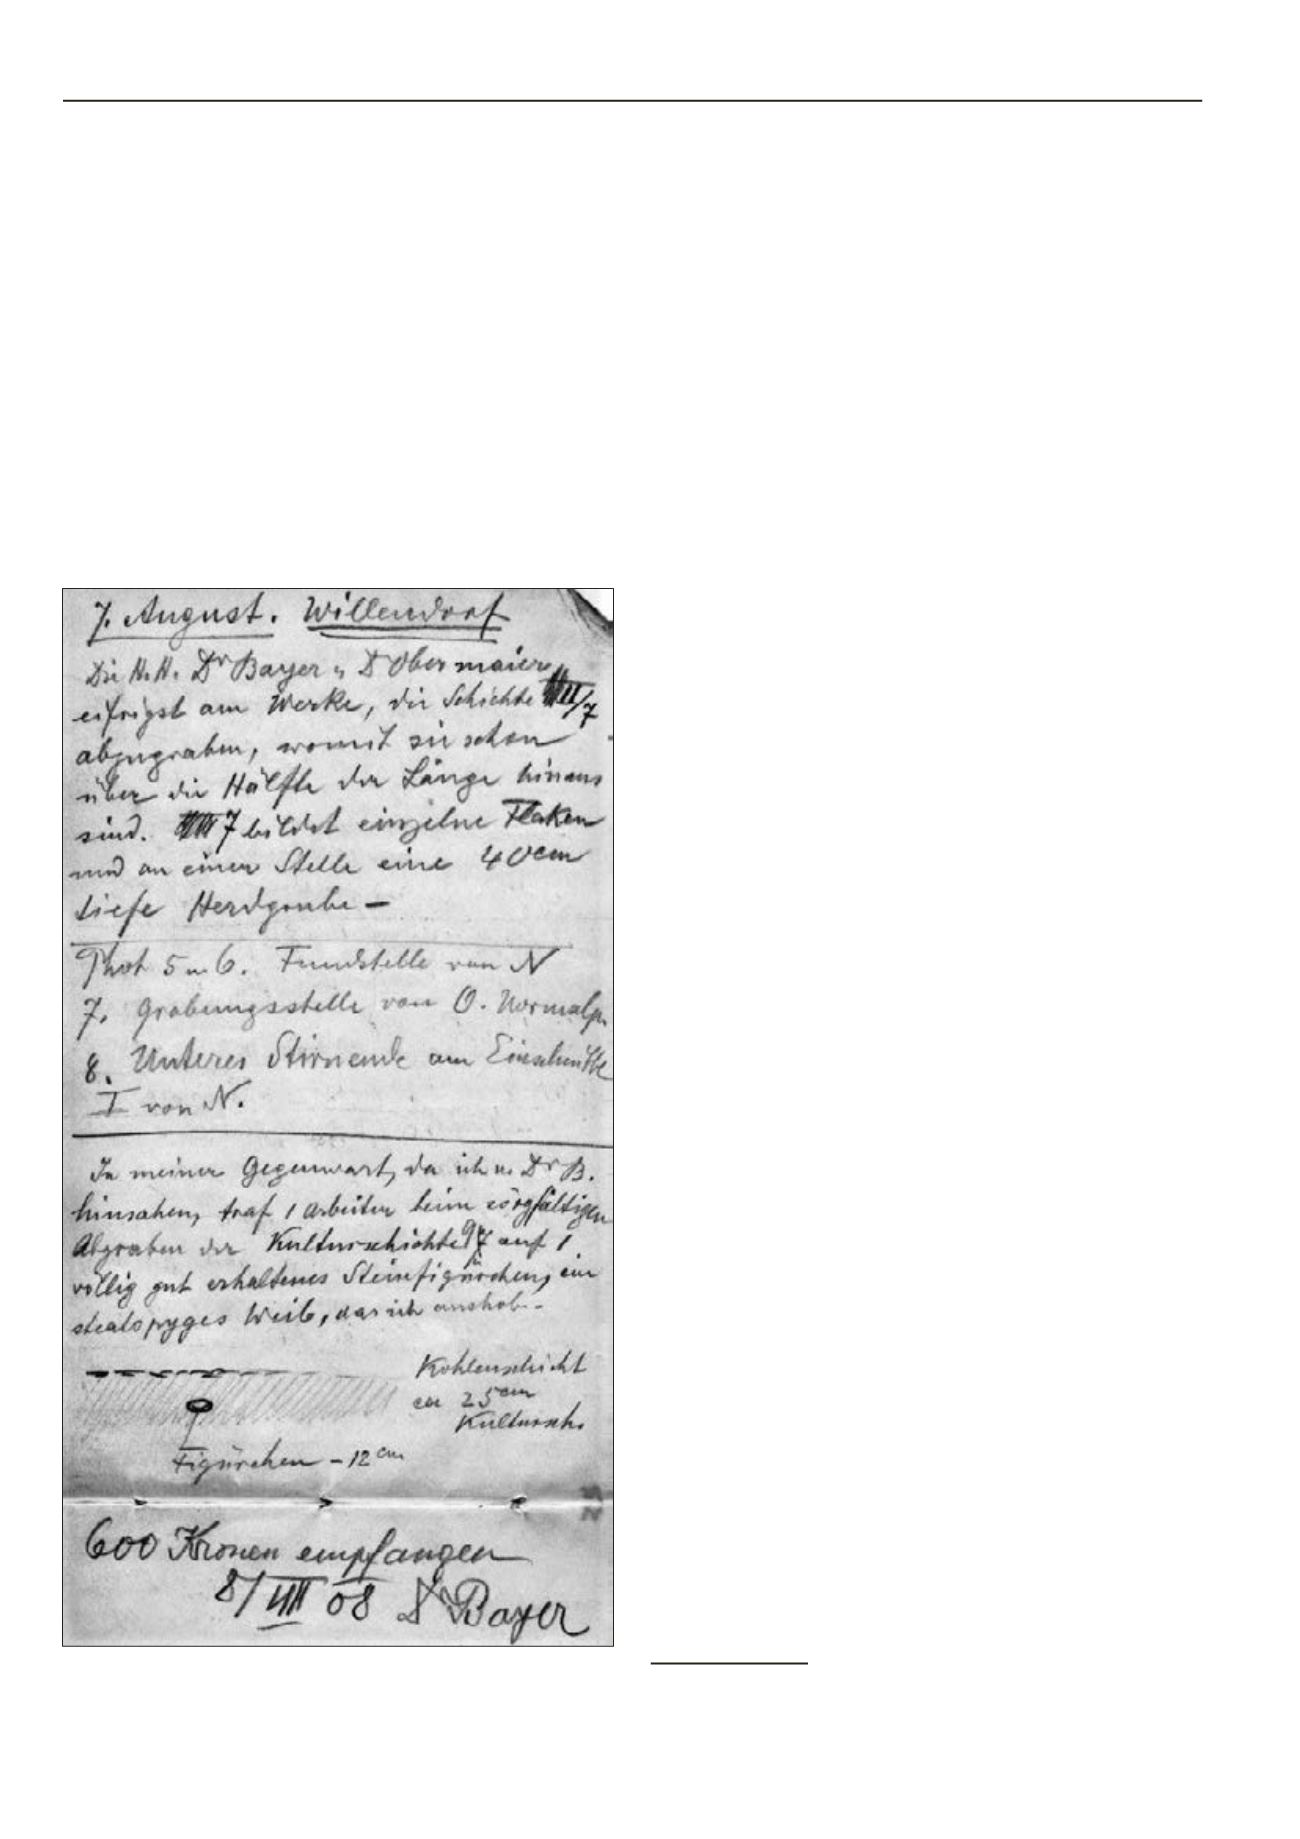 7. August. Willendorf
Die H.H. Dr Bayer u Dr Obermaier
eifrigst am Werke, die Schichte /7
abzugraben, womit sie schon
über die Hälfte der Länge hinaus
sind. 7 bildet einzelne Flaken
und an einer Stelle eine 40cm
tiefe Herdgrube –
Phot 5 u 6. Fundstelle von N
7. Grabungsstelle von O. Normalp.
8. Unteres Stirnende am Einschnitte
I von N.
In meiner Gegenwart, da ich u. Dr B.
hinsahen, traf 1 Arbeiter beim
Abgraben der Kulturschichte auf 1
völlig gut erhaltenes Steinfigürchen, ein
steatopyges Weib, das ich aushob. -
Kohlenschicht
ca 25cm
Kultursch.
Figürchen – 12 cm
600 Kronen empfangen
8/VIII 08 Dr Bayer